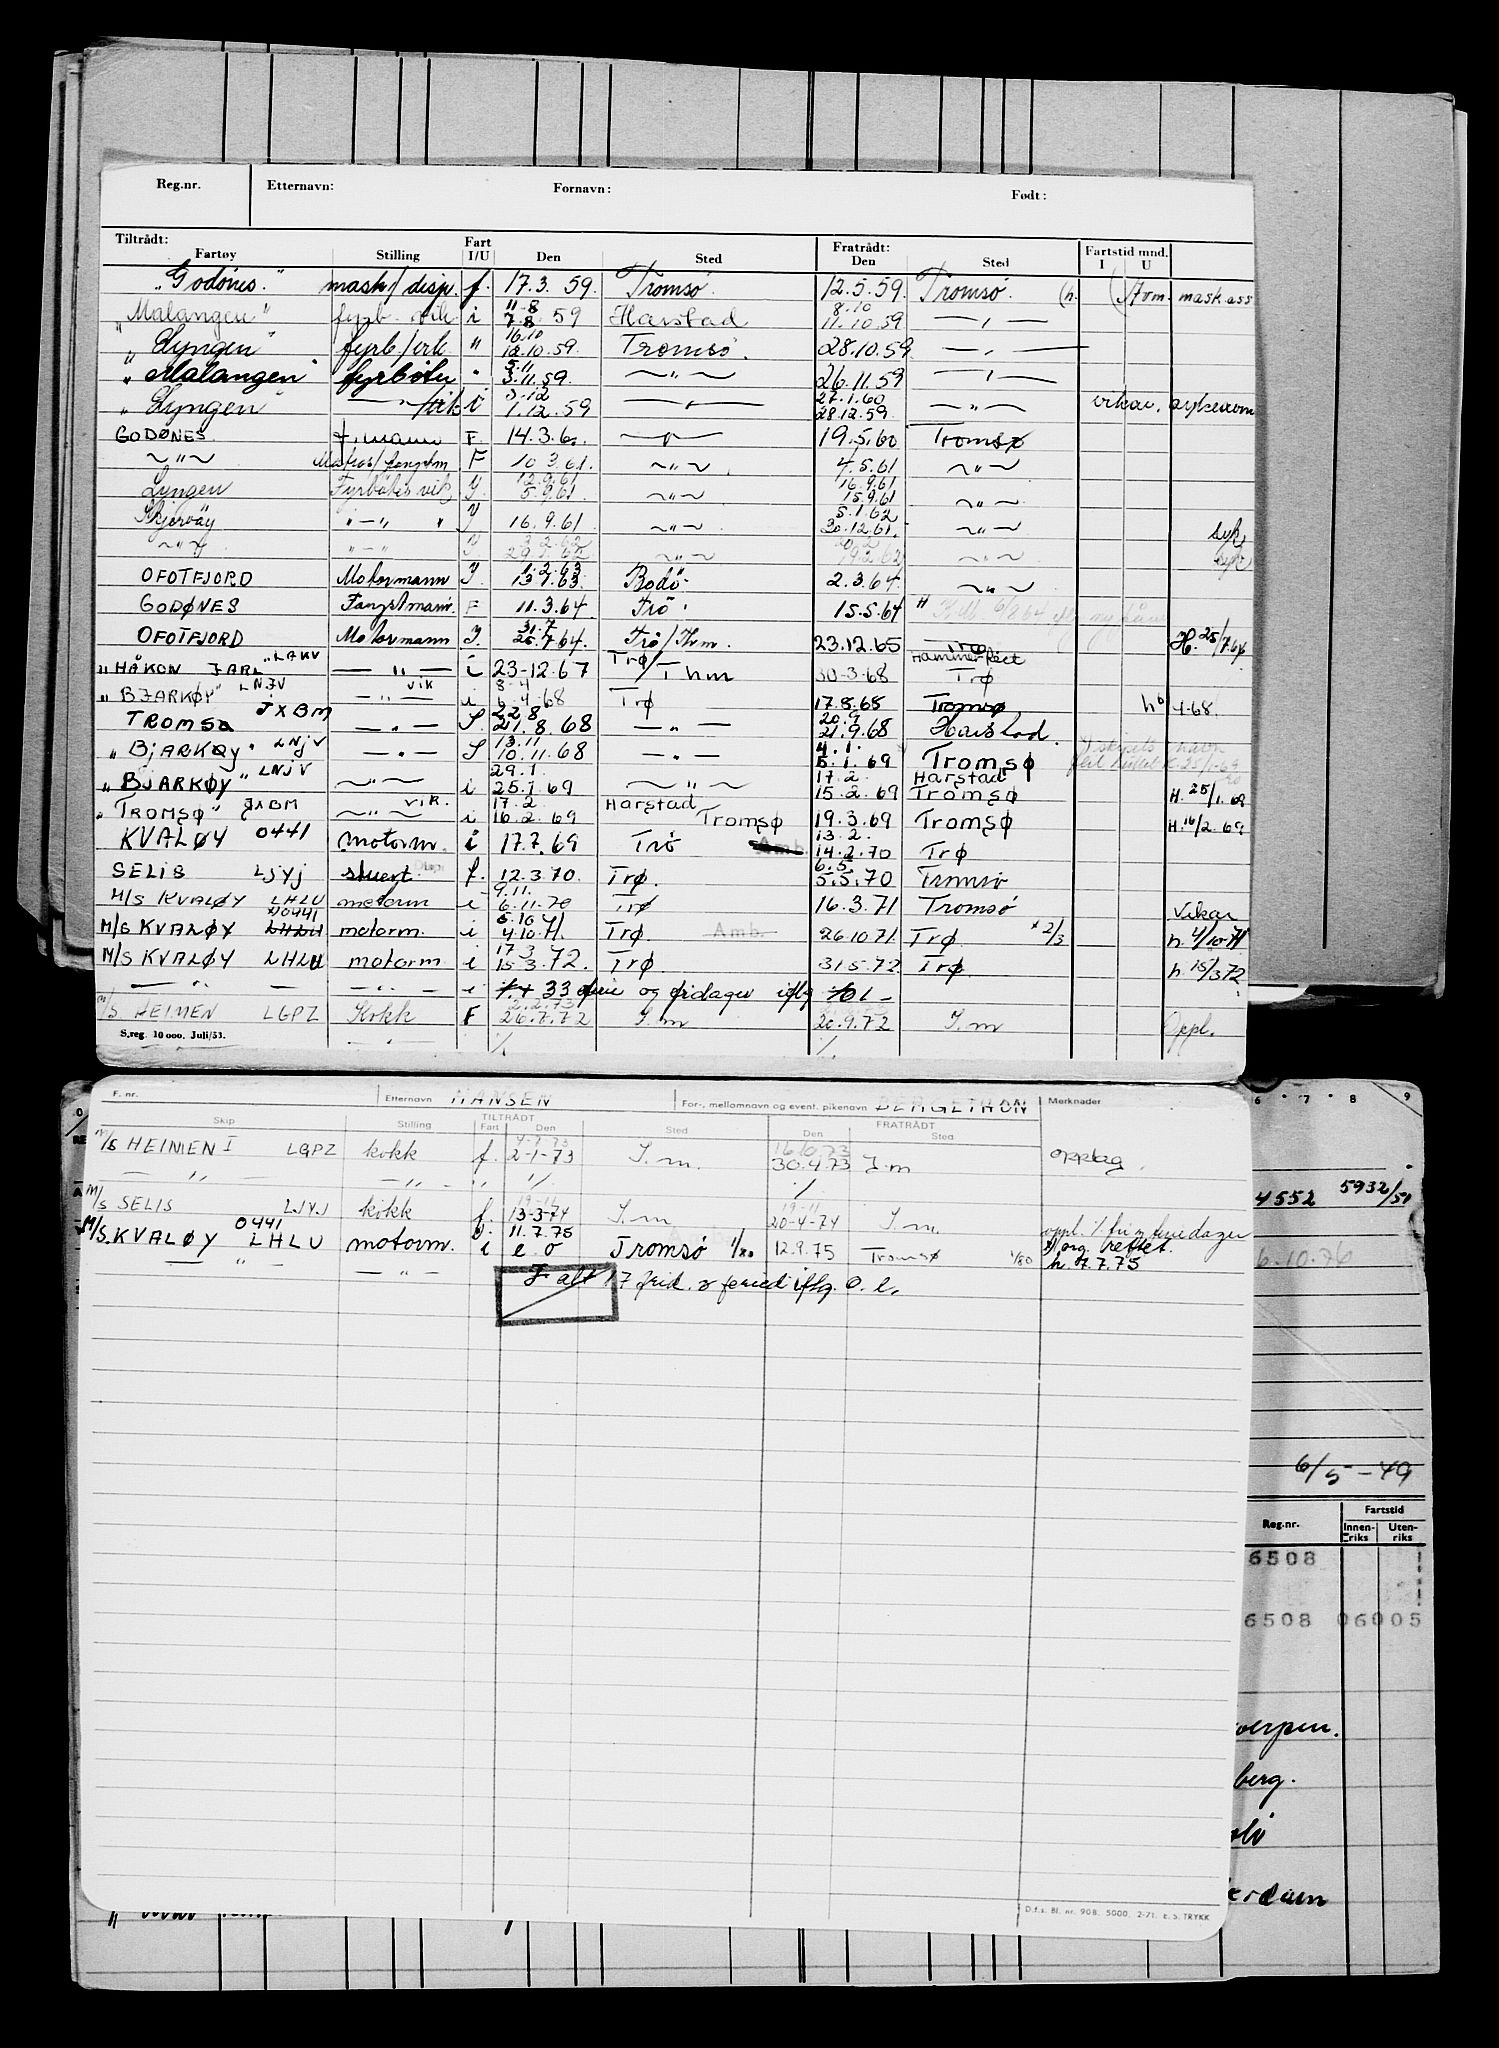 Reg.nr. Etternavn: Fornavn: Født:
Tiltrådt: Fart Fratrådt: Fartstid mnd.
Fartøy Stilling I/U Den Sted Den Sted I U
"Godönes." mask/disp. f. 17.3.59. Tromsö. 12.5.59. Tromsö. mask.ass
11-8 8.10
"Malangen" fyrb. vik. i 7.8 59 Harstad 11.10.59 — " —
16.10
"Lyngen" fyrb/vik " 12.10.59. Tromsö. 28.10.59. — " —
5.11
"Malangen" fyrböter " 3.11.59. — " — 26.11.59 — " —
3.12 27.1.60
"Lyngen" — " — /vik i 1.12.59 — " — 28.12.59 — " — vikar,
GODØNES F. 14.3.60 — " — 19.5.60 Tromsø
— " — Matros/fangstm F 10.3.61. — " — 4.5.61 — " —
12.9.61 16.9.61
Lyngen Fyrböter vik, I. 5.9.61 — " — 15.9.61 — " —
5.1.62
Skjervöy " — " " I 16.9.61 — " — 30.12.61. — " — syk
— " — " — " I. — " — — " — syk
1.2.63
OFOTFJORD Motormann I. 13.1.63. Bodö. 2.3.64 — " —
GODØNES Fangstmann. F 11.3.64 Trö. 15.5.64
31.7
OFOTFJORD Motormann I. 26.7.64. Trö/Thm. 23.12.65 Trö H. 25/7.64
"HÅKON JARL" LAKV — " — i 23-12.67 Trø/Thm 30-3-68 Hammerfest Trø
8-4
"BJARKØY" LNJV — " — vik i 6.4.68 Trø 17.8.68 Tromsø h 6 4-68.
22.8 20.9
TROMSØ JXBM — " — I. 21.8.68 — " — 21.9.68 Harstad.
13.11 4.1.
"BjARKØy" LNjV — " — I 10.11.68 — " — 5.1.69 Tromsø
29.1. 17.2. Harstad
"BJARKØY" LNJV — " — i 25.1.69 — " — 15.2.69 Tromsø H. 25/1.69
17.2. Harstad
"TROMSØ" JXBM — " — vik. i 16.2.69 Tromsø 19.3.69 Tromsø H.16/2.69
13.2.
KVALØY 0441 motorm. i 17.7.69 Trö Amb. 14.2.70 Trø
6.5.
SELIS LJYJ stuert f. 12.3.70. Trø. 5.5.70 Tromsö
9.11.
M/S KVALØY LHLU motorm i 6.11.70 Trø 16.3.71 Tromsø Vikar
0441 5.10.71.
M/S KVALØY LHLU motorm. i 4.10.71. Trø. Amb. 26.10.71 Trø. x 2/3 h. 4/10-71
17.3
M/S KVALØY LHLU motorm i 15.3.72. Trø. 31.5.72 Trø. h. 15/3 72
— " — — " — i 33 ferie og fridager iflg
2.2.73
M/S HEIMEN LGPZ Kokk F 26.7.72 I.m 20.9.72 I.m Oppl.
S.reg. 10 000. Juli/53. — " — % %
F. nr. Etternavn HANSEN For-, mellomnavn og event. pikenavn BERGETHON Merknader
TILTRÅDT FRATRÅDT
Skip Stilling Fart Den Sted Den Sted
16.10.73
M/S HEIMEN I LGPZ kokk f. 2-1-73 I.m. 30.4.73 I.m opplag.
— " — — " — " % %
19-11 19-11
M/S SELIS LJYJ kokk f. 13-3-74 I.m. 20-4-74 I.m.
0441 11.7.75
M/S.KVALØY LHLU motorm. i e.o Tromsø 1/80 12.9.75 Tromsø 1/80 org. rettet.
— " — — " — h. 7.7.75
I alt 17 frid. & feried iflg. o. l.
D.f.s. Bl. nr. 908. 5000. 2-71. E.S. TRYKK
6 7 8 9
4552 5932/51
6.10.76
6/5-49
Reg.nr. Fartstid
Innen-riks Uten-riks
6508
6508 06005
verpen.
berg.
erdam